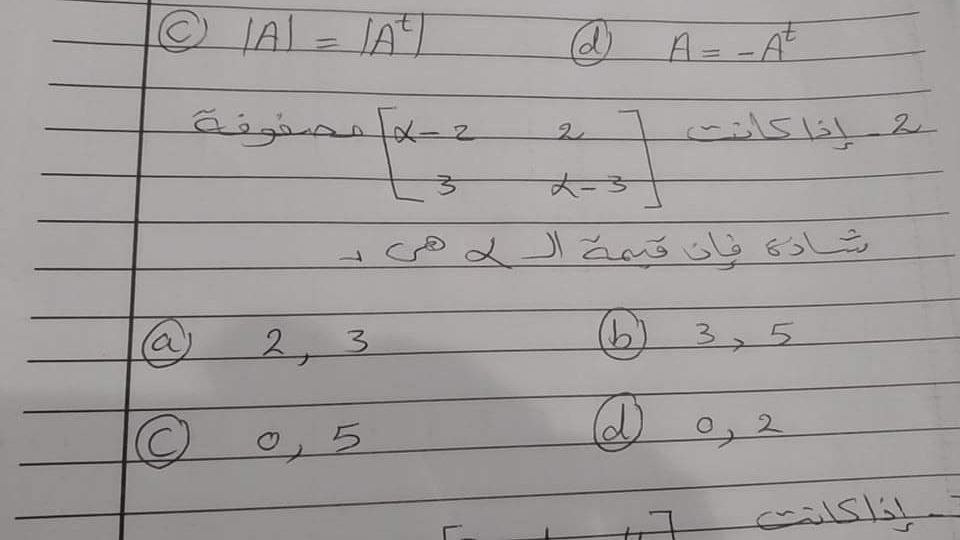 ⓒ |A| = |Aᵗ| ⓓ A = -Aᵗ
2- إذا كانت [α-2 2 مصفوفة
3 α-3]
شاذة فإن قيمة الـ α هى
ⓐ 2, 3 ⓑ 3, 5
ⓒ 0, 5 ⓓ 0, 2
إذا كانت